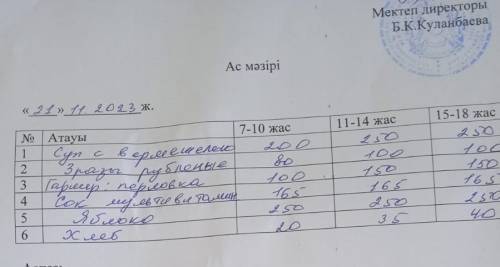 Мектеп директоры
Б.К.Куланбаева
Ас мәзірі
« 21 » 11 2023 ж.
№ Атауы 7-10 жас 11-14 жас 15-18 жас
1 Суп с вермешелью 200 250 250
2 Зразы рубленые 80 100 100
3 Гарнир: перловка 100 150 150
4 Сок мультивитамин 165 165 165
5 Яблоко 250 250 250
6 Хлеб 20 35 40